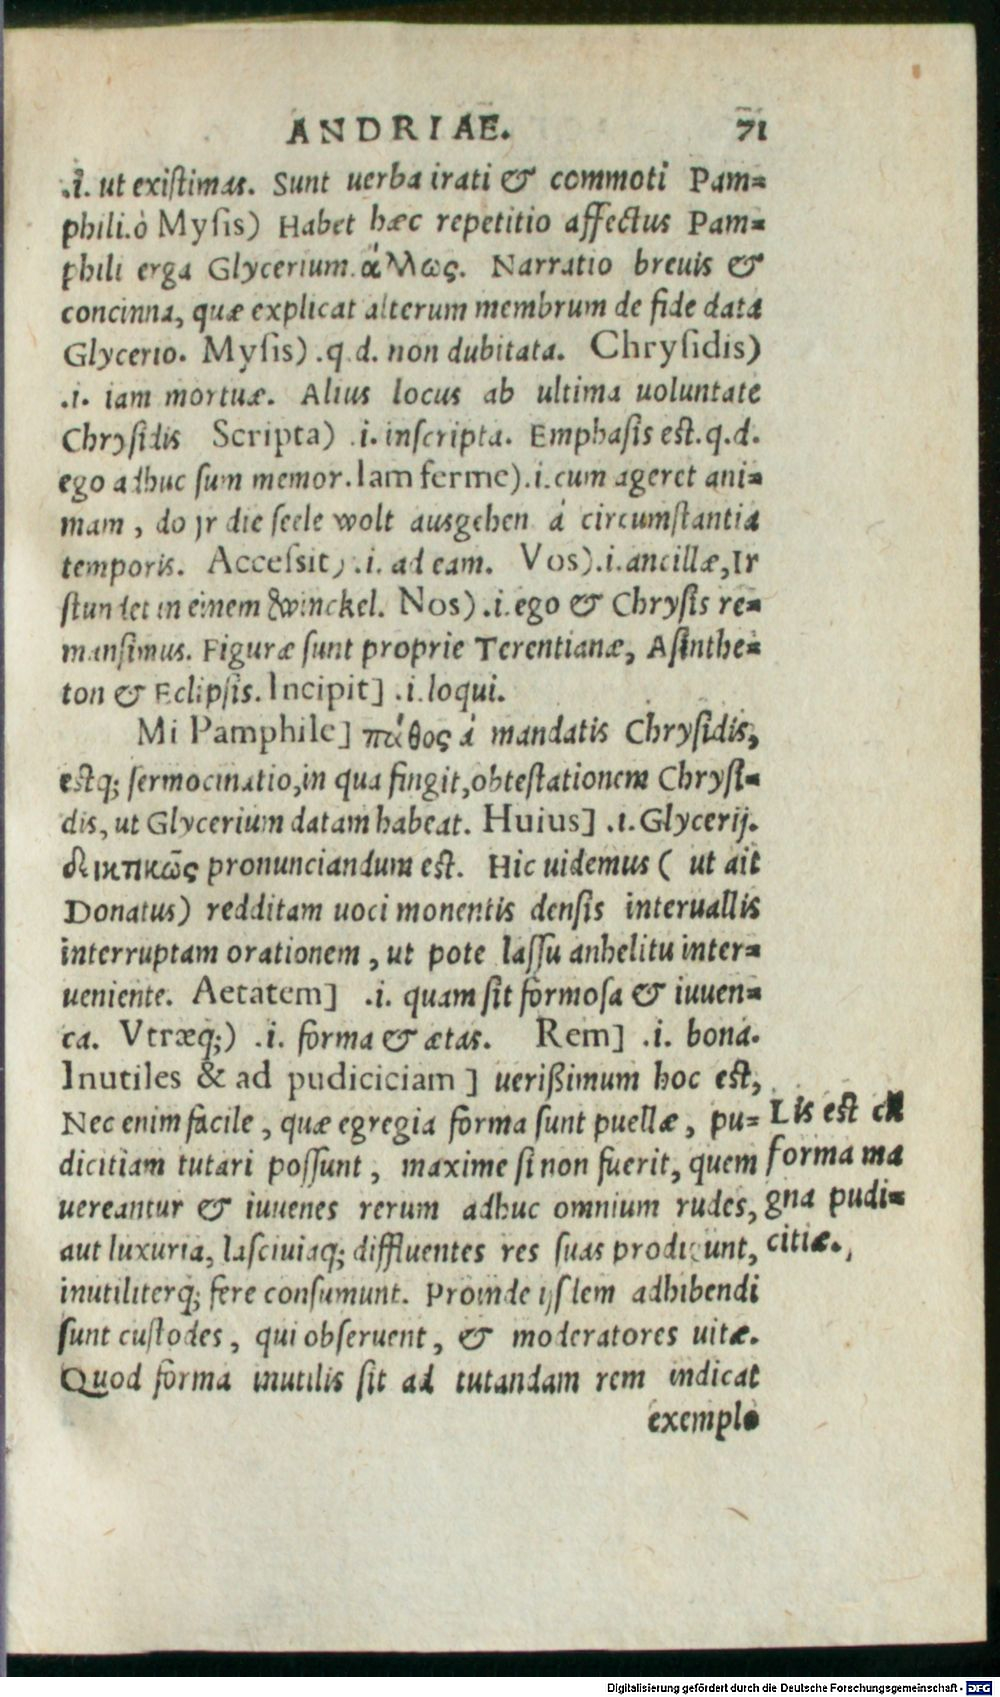 ANDRIAE. 71
.i. ut existimas. Sunt uerba irati & commoti Pam=
phili.ò Mysis) Habet hæc repetitio affectus Pam=
phili erga Glycerium.ἄλλως. Narratio breuis &
concinna, quæ explicat alterum membrum de fide data
Glycerio. Mysis) .q.d. non dubitata. Chrysidis)
.i. iam mortuæ. Alius locus ab ultima uoluntate
Chrysidis Scripta) .i. inscripta. Emphasis est.q.d.
ego adhuc sum memor. Iam ferme).i.cum ageret ani=
mam, do jr die seele wolt ausgehen á circumstantia
temporis. Accessit) .i. ad eam. Vos).i.ancillæ, Ir
stundet in einem winckel. Nos) .i.ego & Chrysis re=
mansimus. Figuræ sunt proprie Terentianæ, Asinthe=
ton & Eclipsis. Incipit] .i.loqui.
Mi Pamphile] πάθος á mandatis Chrysidis,
estq; sermocinatio,in qua fingit,obtestationem Chrysi=
dis, ut Glycerium datam habeat. Huius] .i.Glycerij.
δεικτικῶς pronunciandum est. Hic uidemus ( ut ait
Donatus) redditam uoci monentis densis interuallis
interruptam orationem, ut pote lassu anhelitu inter=
ueniente. Aetatem] .i. quam sit formosa & iuuen=
ca. Vtræq;) .i. forma & ætas. Rem] .i. bona.
Inutiles & ad pudiciciam] uerißimum hoc est,
Nec enim facile, quæ egregia forma sunt puellæ, pu=
dicitiam tutari possunt, maxime si non fuerit, quem
uereantur & iuuenes rerum adhuc omnium rudes,
aut luxuria, lasciuiaq; diffluentes res suas prodigunt,
inutiliterq; fere consumunt. Proinde ijsdem adhibendi
sunt custodes, qui obseruent, & moderatores uitæ.
Quod forma inutilis sit ad tutandam rem indicat
exemplo
Lis est cū
forma ma
gna pudi=
citiæ.
Digitalisierung gefördert durch die Deutsche Forschungsgemeinschaft - DFG